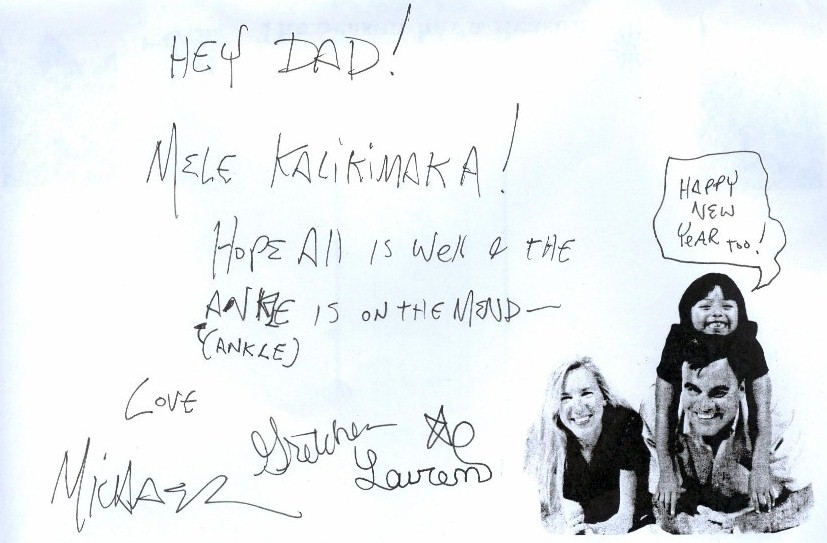 HEY DAD!
MELE KALIKIMAKA!
HOPE All is Well & THE
ANKLE is ON THE MEND—
(ANKLE)
LOVE
MICHAEL
Gretchen
Lauren
HAPPY
NEW
YEAR too!